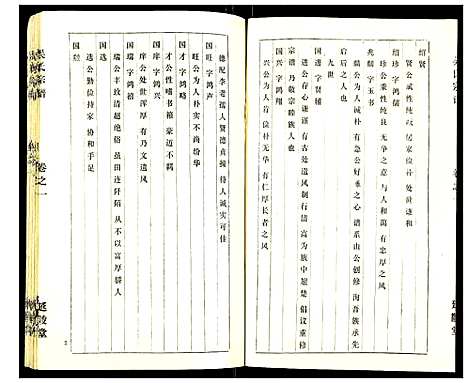 绍贤
贤公诚性纯 居家俭朴 处世谦和
绍珍 字鸿儒
珍公秉性纯良 无争之意 与人和蔼 有忠厚风
兆儒 字玉书
儒公为人诚朴 有良公好义之心 谱系由公创修 洵吾族承先
启后之人也
九世
国进 字贤辅
进公存心谦谨 有古处遗风 制行清高 为族中翘楚 倡议重修
宗谱 乃敬宗睦族人也
国兴 字鸿翔
兴公为人 首俭朴 无华 有仁厚长者之风
德配李老孺人 贤德贞娴 待人诚实可佳
国旺 字鸿声
旺公为人 朴实不尚纷华
国才 字鸿略
才公性嗜书籍 豪迈不羁
国庠 字鸿序
庠公处世浑厚 有乃文遗风
国瑞 字鸿禧
瑞公丰致清超绝俗 虽田连阡陌 从不以富厚骄人
国选
选公勤俭持家 协和手足
卷之一